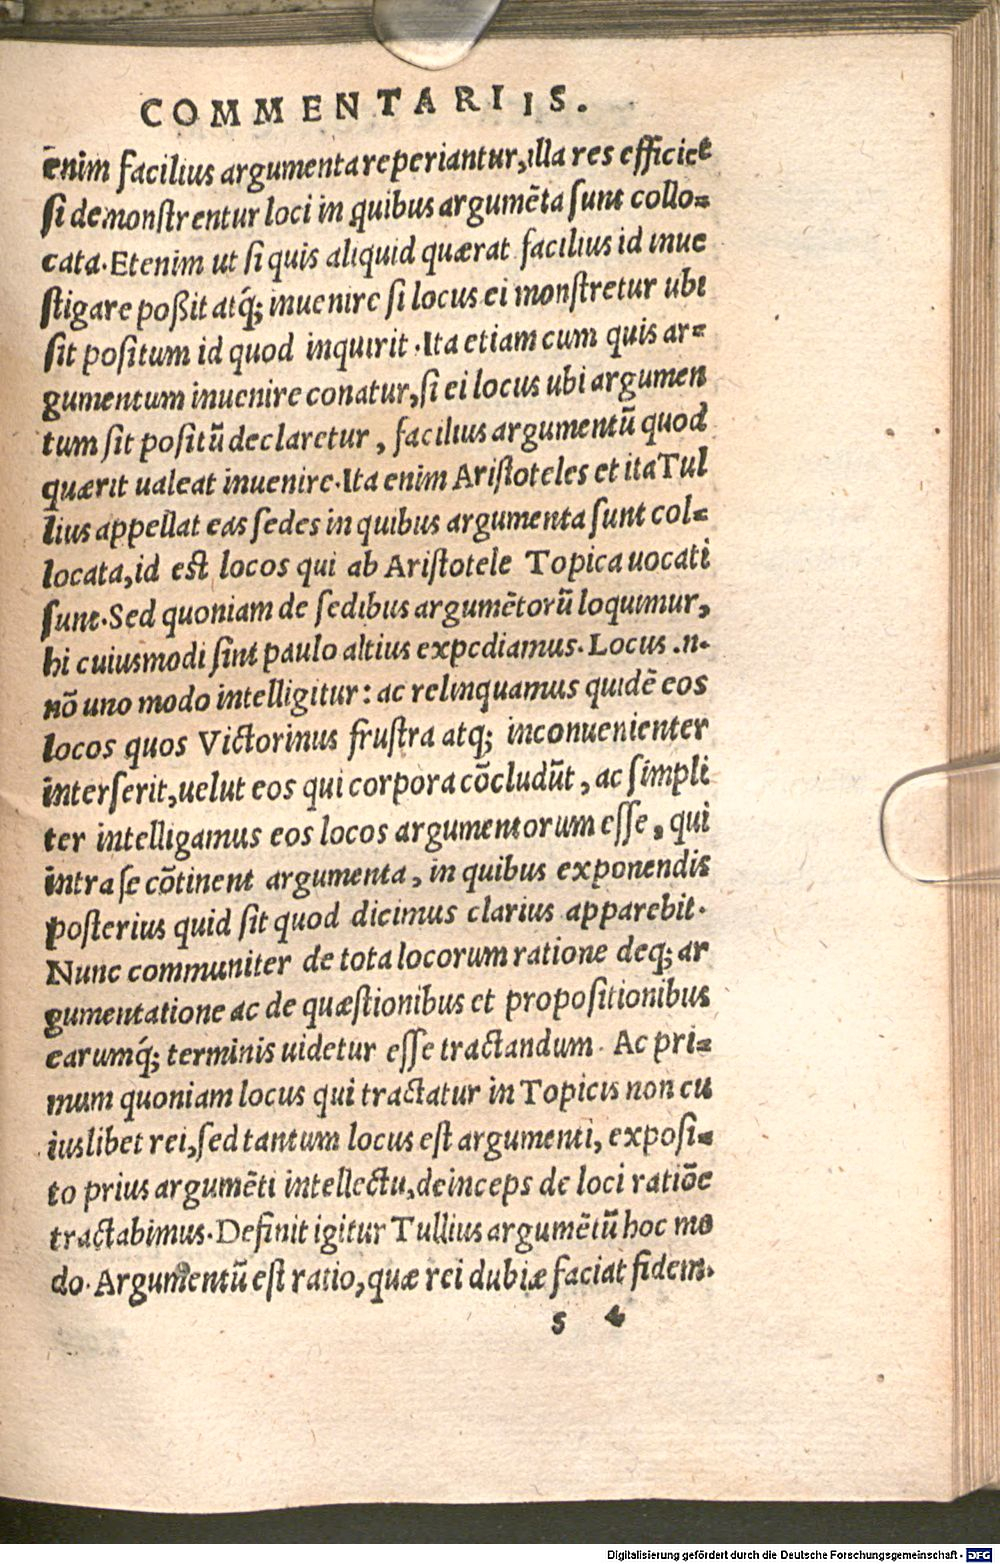 COMMENTARIIS.
enim facilius argumenta reperiantur, illa res efficiet
ſi demonſtrentur loci in quibus argumēta ſunt collo⸗
cata. Etenim ut ſi quis aliquid quærat facilius id inue
ſtigare poßit atq́; inuenire ſi locus ei monſtretur ubi
ſit poſitum id quod inquirit. Ita etiam cum quis ar⸗
gumentum inuenire conatur, ſi ei locus ubi argumen
tum ſit poſitū declaretur, facilius argumentū quod
quærit ualeat inuenire. Ita enim Ariſtoteles et ita Tul
lius appellat eas ſedes in quibus argumenta ſunt col⸗
locata, id eſt locos qui ab Ariſtotele Topica uocati
ſunt. Sed quoniam de ſedibus argumētorū loquimur,
hi cuiusmodi ſint paulo altius expediamus. Locus .n.
nō uno modo intelligitur: ac relinquamus quidē eos
locos quos Victorinus fruſtra atq; inconuenienter
interſerit, uelut eos qui corpora cōcludūt, ac ſimpli
ter intelligamus eos locos argumentorum eſſe, qui
intra ſe cōtinent argumenta, in quibus exponendis
poſterius quid ſit quod dicimus clarius apparebit.
Nunc communiter de tota locorum ratione deq; ar
gumentatione ac de quæſtionibus et propoſitionibus
earumq́; terminis uidetur eſſe tractandum. Ac pri⸗
mum quoniam locus qui tractatur in Topicis non cu
iuslibet rei, ſed tantum locus eſt argumenti, expoſi⸗
to prius argumēti intellectu, deinceps de loci ratiōe
tractabimus. Definit igitur Tullius argumētū hoc mo
do. Argumentū eſt ratio, quæ rei dubiæ faciat fidem.
s 4
Digitalisierung gefördert durch die Deutsche Forschungsgemeinschaft - DFG